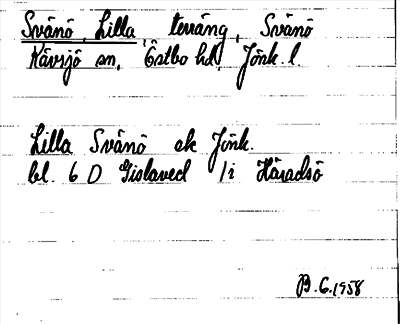 Svänö, Lilla, terräng, Svänö
Kävsjö sn, Östbo hd, Jönk. l.
Lilla Svänö ek Jönk.
bl. 6 D Gislaved 1i Häradsö
B.G.1958